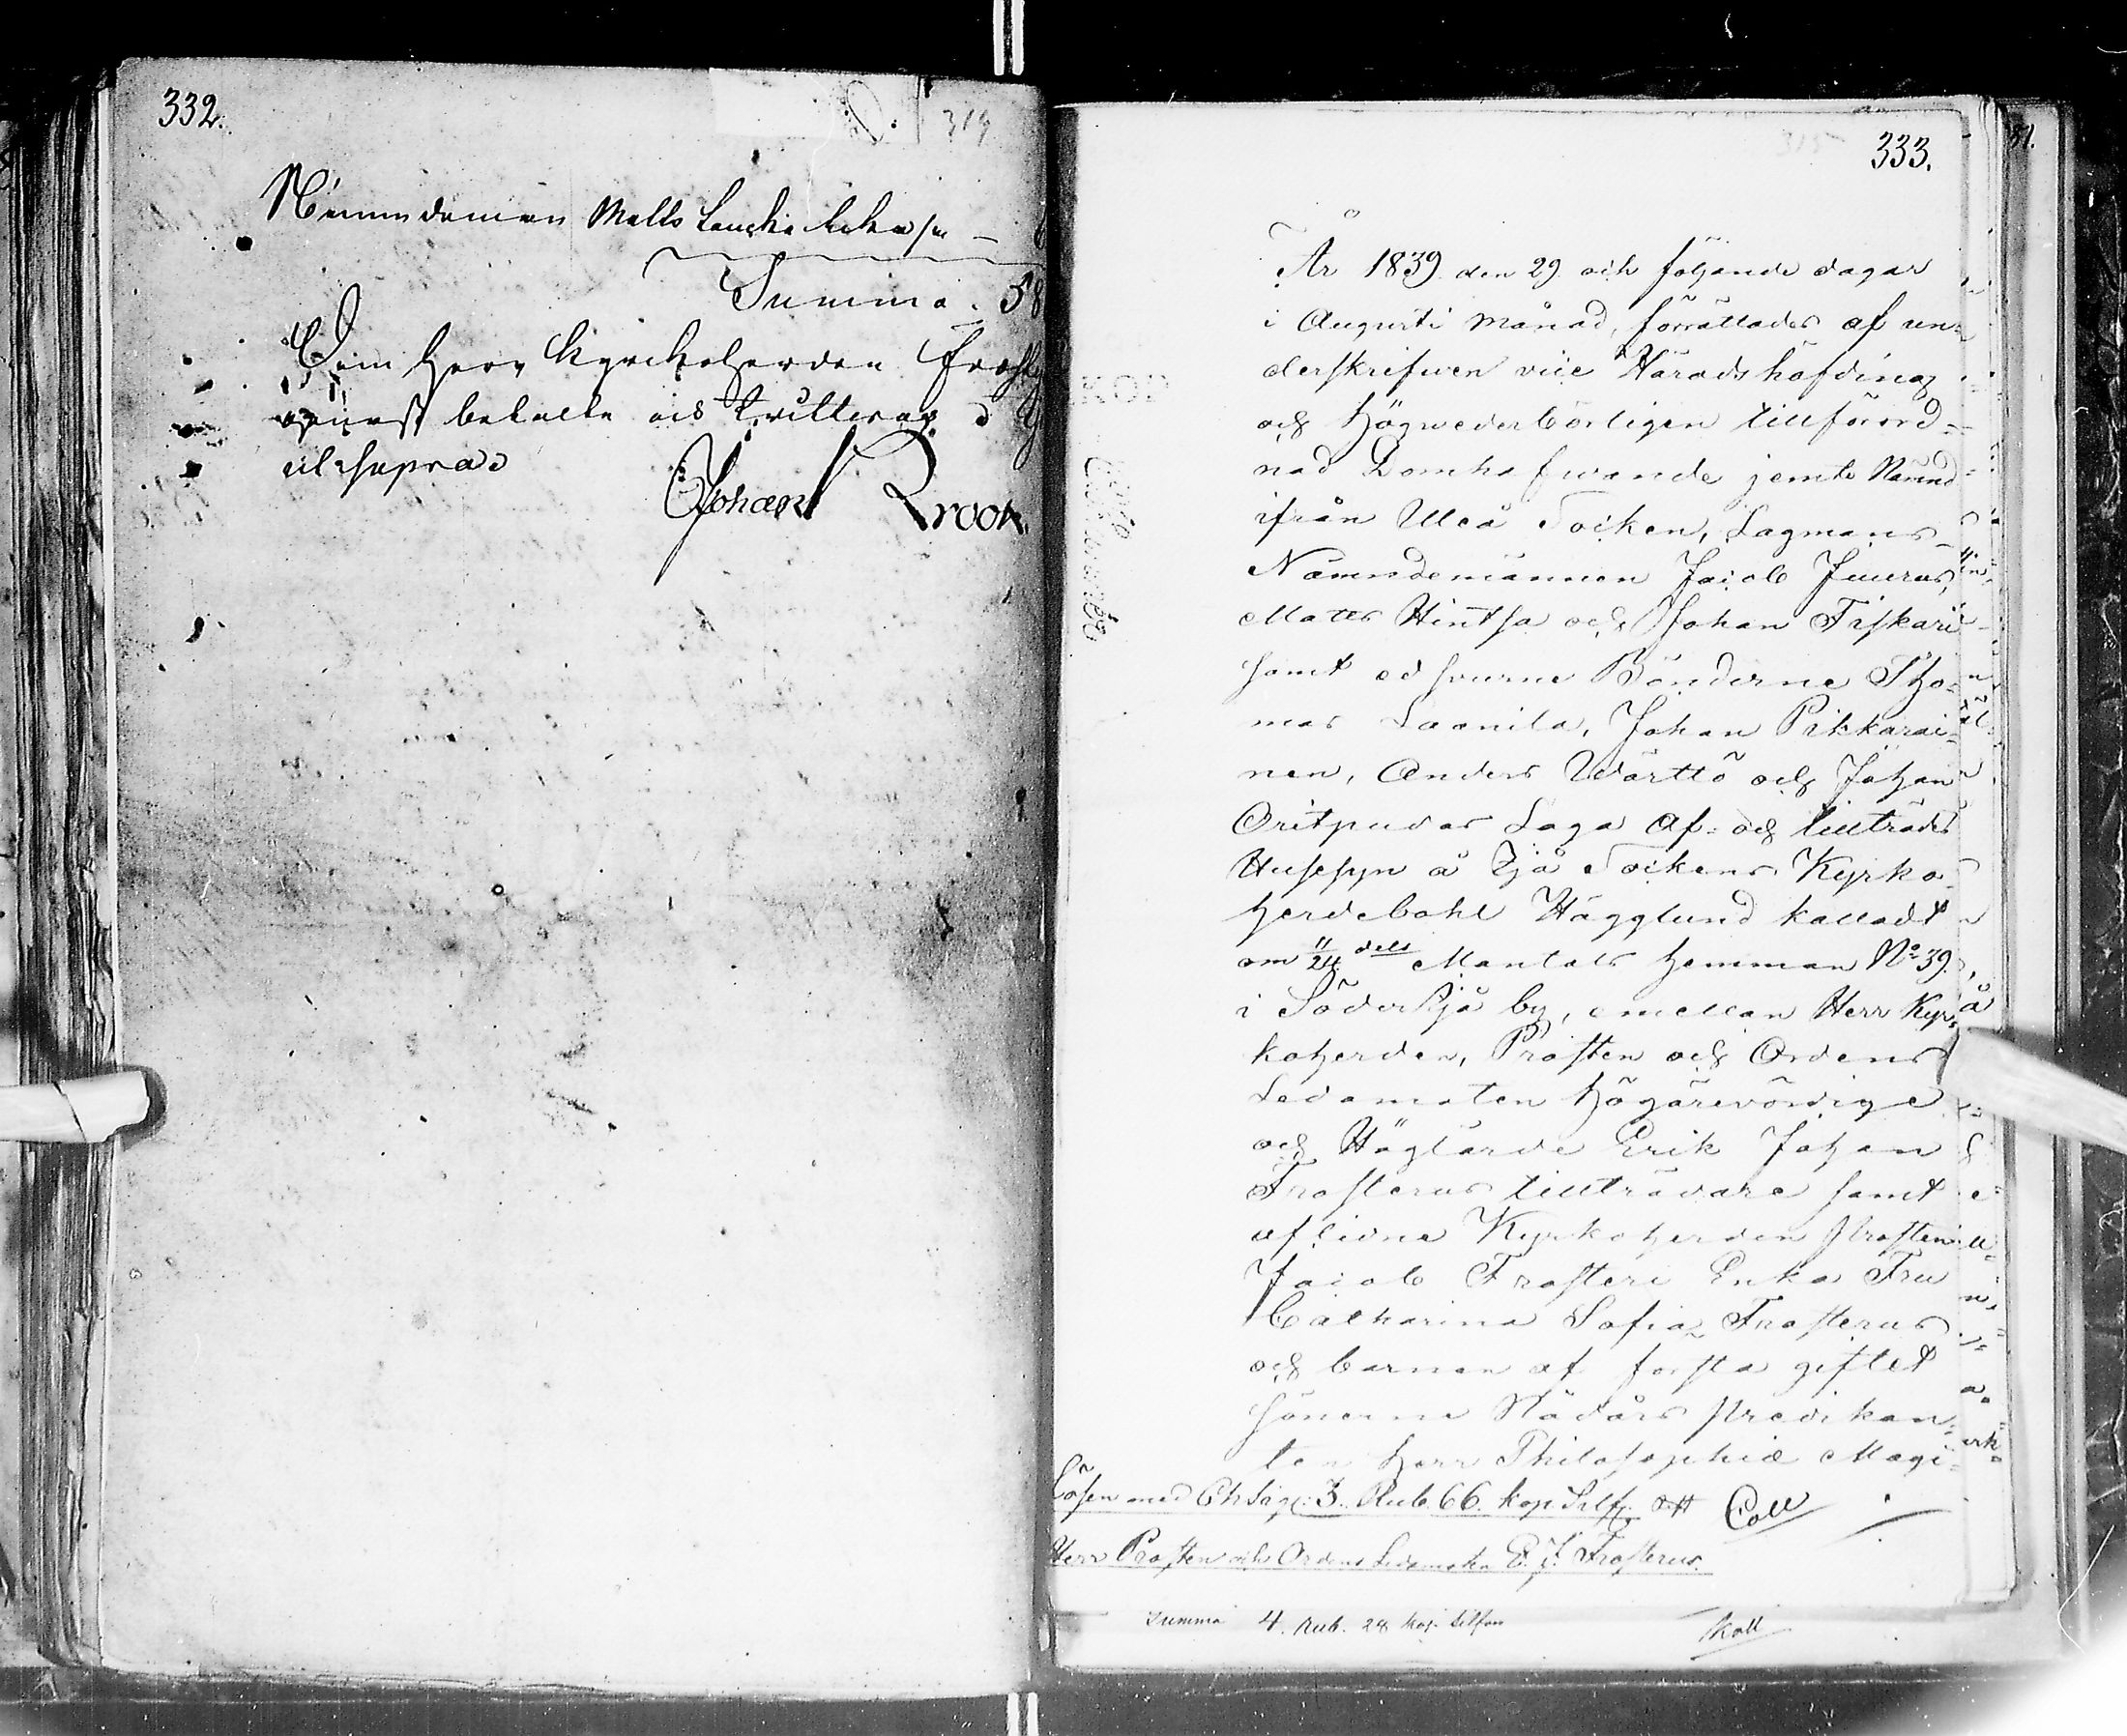 332.
319
Nämndeman Matts
Summa. 58
Herr Kyrckoherden
betalte
ut supra
Johan Krook.
315
333.
År 1839 den 29 och följande dagar
i Augusti Månad, förrättades af un=
derskrifwen vice Häradshöfding
och högwederbörligen tillförord=
nad Domhafwande jemte Nämnd
ifrån Uleå Socken, Lagmans-
Nämndemännen Jacob Juurus,
Matts Hintsa och Johan Fiskari
samt edsvurne Bönderne Tho=
mas Laanila, Johan Pikkarai=
nen, Anders Wärttö och Johan
Oritpudas Laga af= och tillträdes
Husesyn å Ijå Sockens Kyrko=
herdebohl Hägglund kalladt
om 11/24 dels Mantals hemman No 39.
i Söder Ijå by, emellan Herr Kyr=
koherden, Prosten och Ordens
Ledamoten högärevördige
och Höglärde Erik Johan
Frosterus tillträdare samt
aflidne Kyrkoherden Prosten
Jacob Frosteri Enka Fru
Catharina Sofia Frosterus
och barnen af första giftet
sönerne Nådårs Predikan=
ten Herr Philosophiæ Magi=
Lösen med Ch Sig: 3. Rub. 66. kop. Silf. Coll
Herr Prosten och Ordens Ledamoten E. J. Frosterus.
Summa 4. Rub. 28 kop. silfver